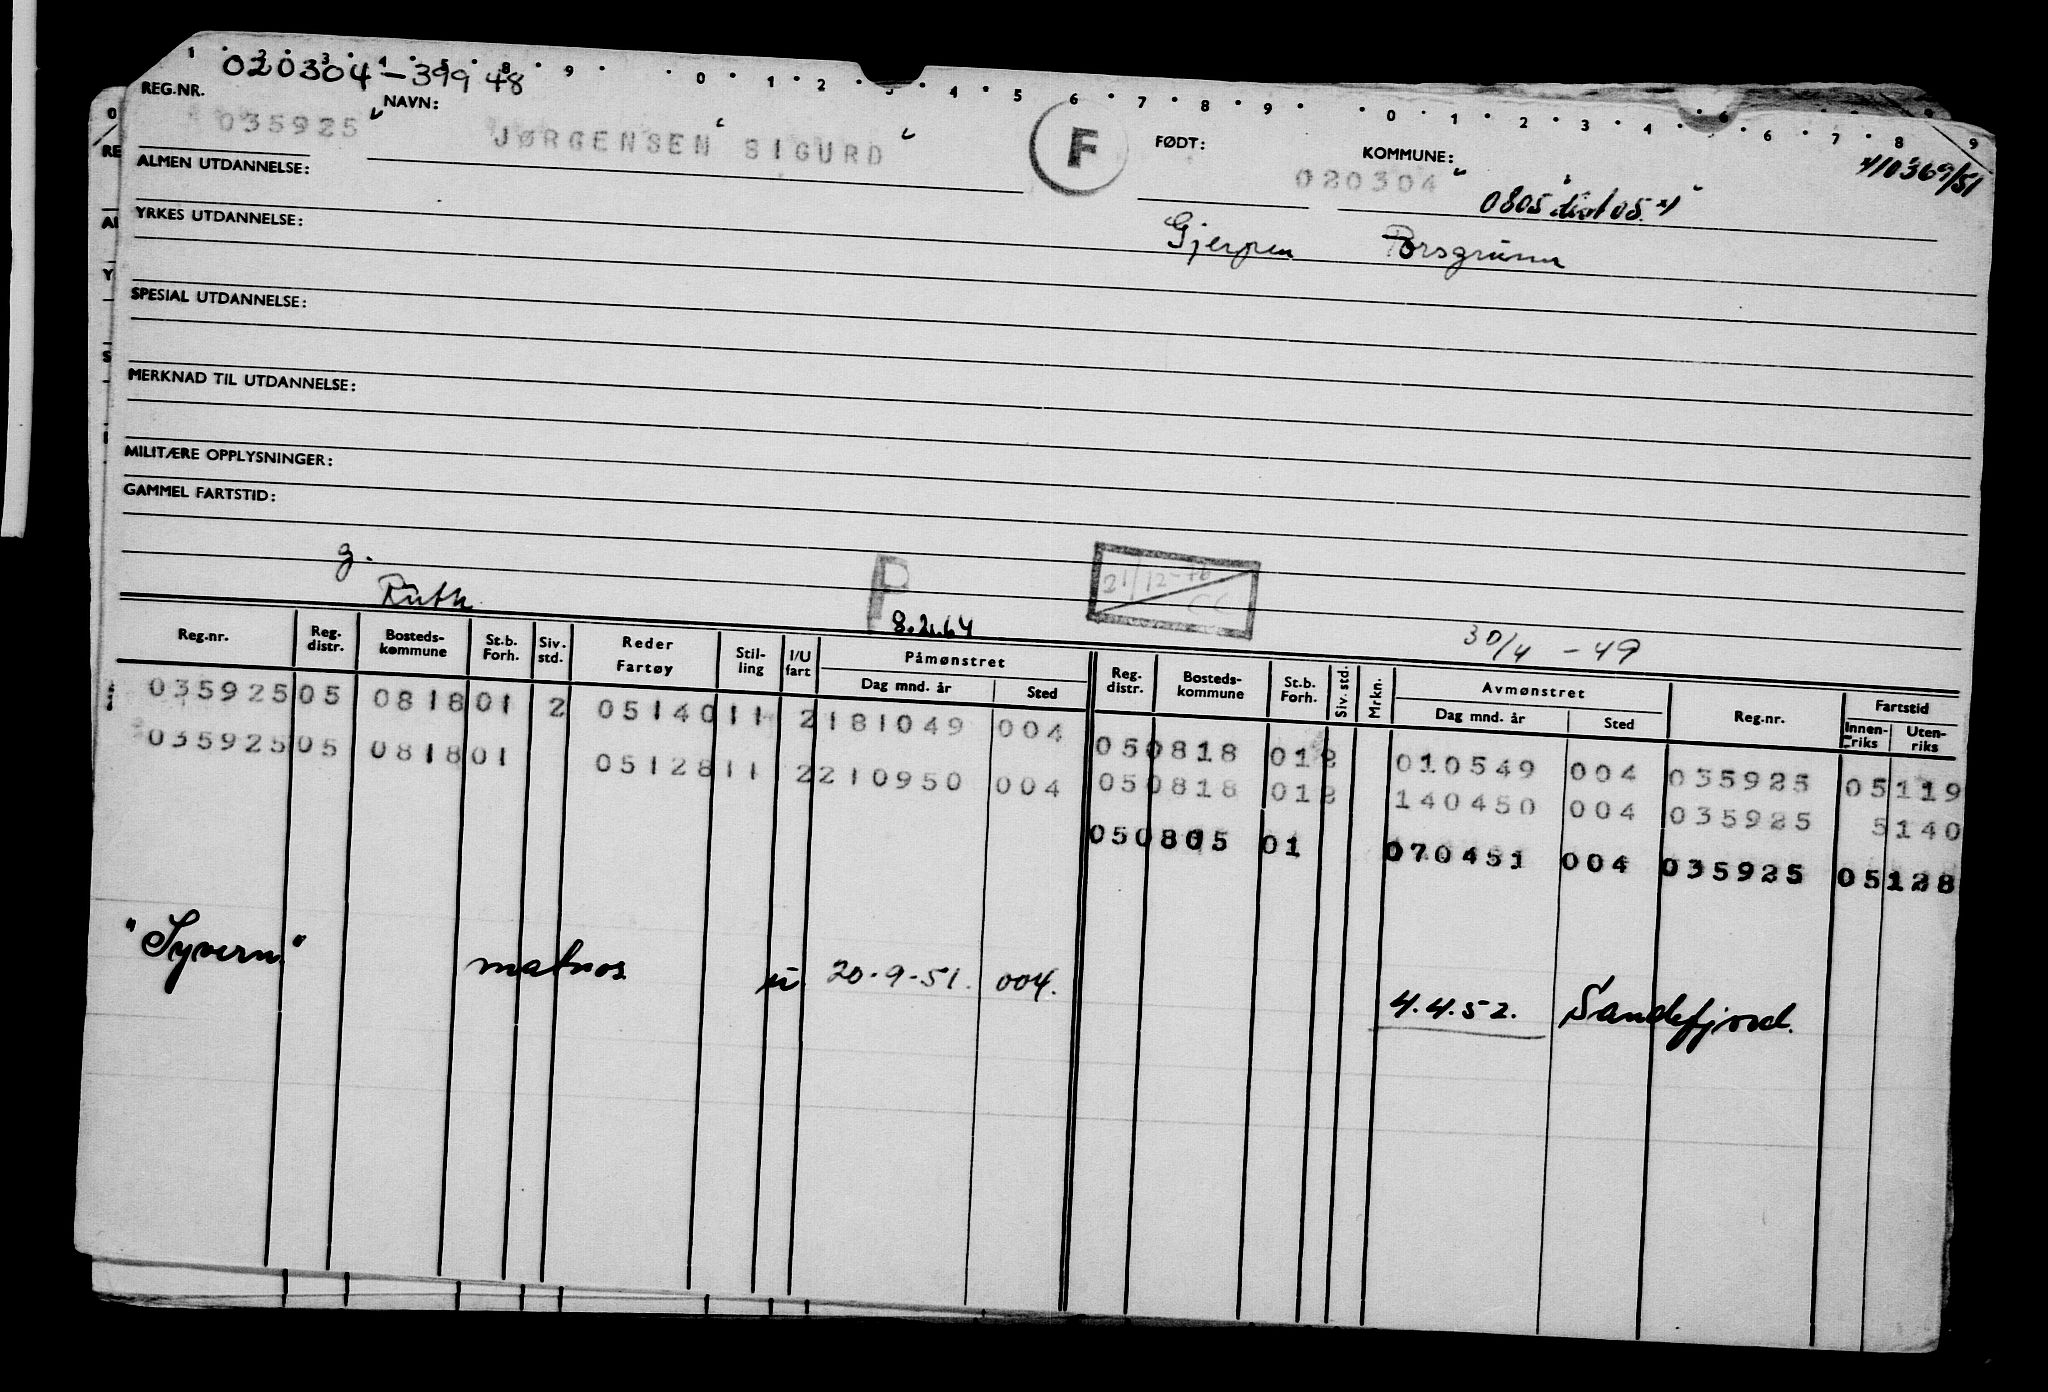 1 2 3 4 5 8 9 0 1 2 3 4 5 6 7 8 9 0 1 2 3 4 5 6 7 8 9
020304-39948
REG.NR. NAVN: FØDT: KOMMUNE:
035925 JØRGENSEN SIGURD F 020304 0805 dist 05 110369/51
ALMEN UTDANNELSE:
Gjerpen Porsgrunn
YRKES UTDANNELSE:
SPESIAL UTDANNELSE:
MERKNAD TIL UTDANNELSE:
MILITÆRE OPPLYSNINGER:
GAMMEL FARTSTID:
g.
Ruth P 8.2.64 21/12-76 CC 30/4 -49
Reg.nr. Reg. distr. Bosteds- kommune St.b. Forh. Siv. std. Reder Fartøy Stil- ling I/U fart Påmønstret Dag mnd. år Sted Reg. distr. Bosteds- kommune St.b. Forh. Siv. std. Mrkn. Avmønstret Dag mnd. år Sted Reg.nr. Fartstid Innen- riks Uten- riks
035925 05 0818 01 2 05140 11 2 181049 004
05 0818 01 2 010549 004 035925 05119
035925 05 0818 01 05128 11 2 210950 004
05 0818 01 2 140450 004 035925 5140
05 0805 01 070451 004 035925 05128
"Syvern" matros u. 20-9-51. 004.
4.4.52. Sandefjord.